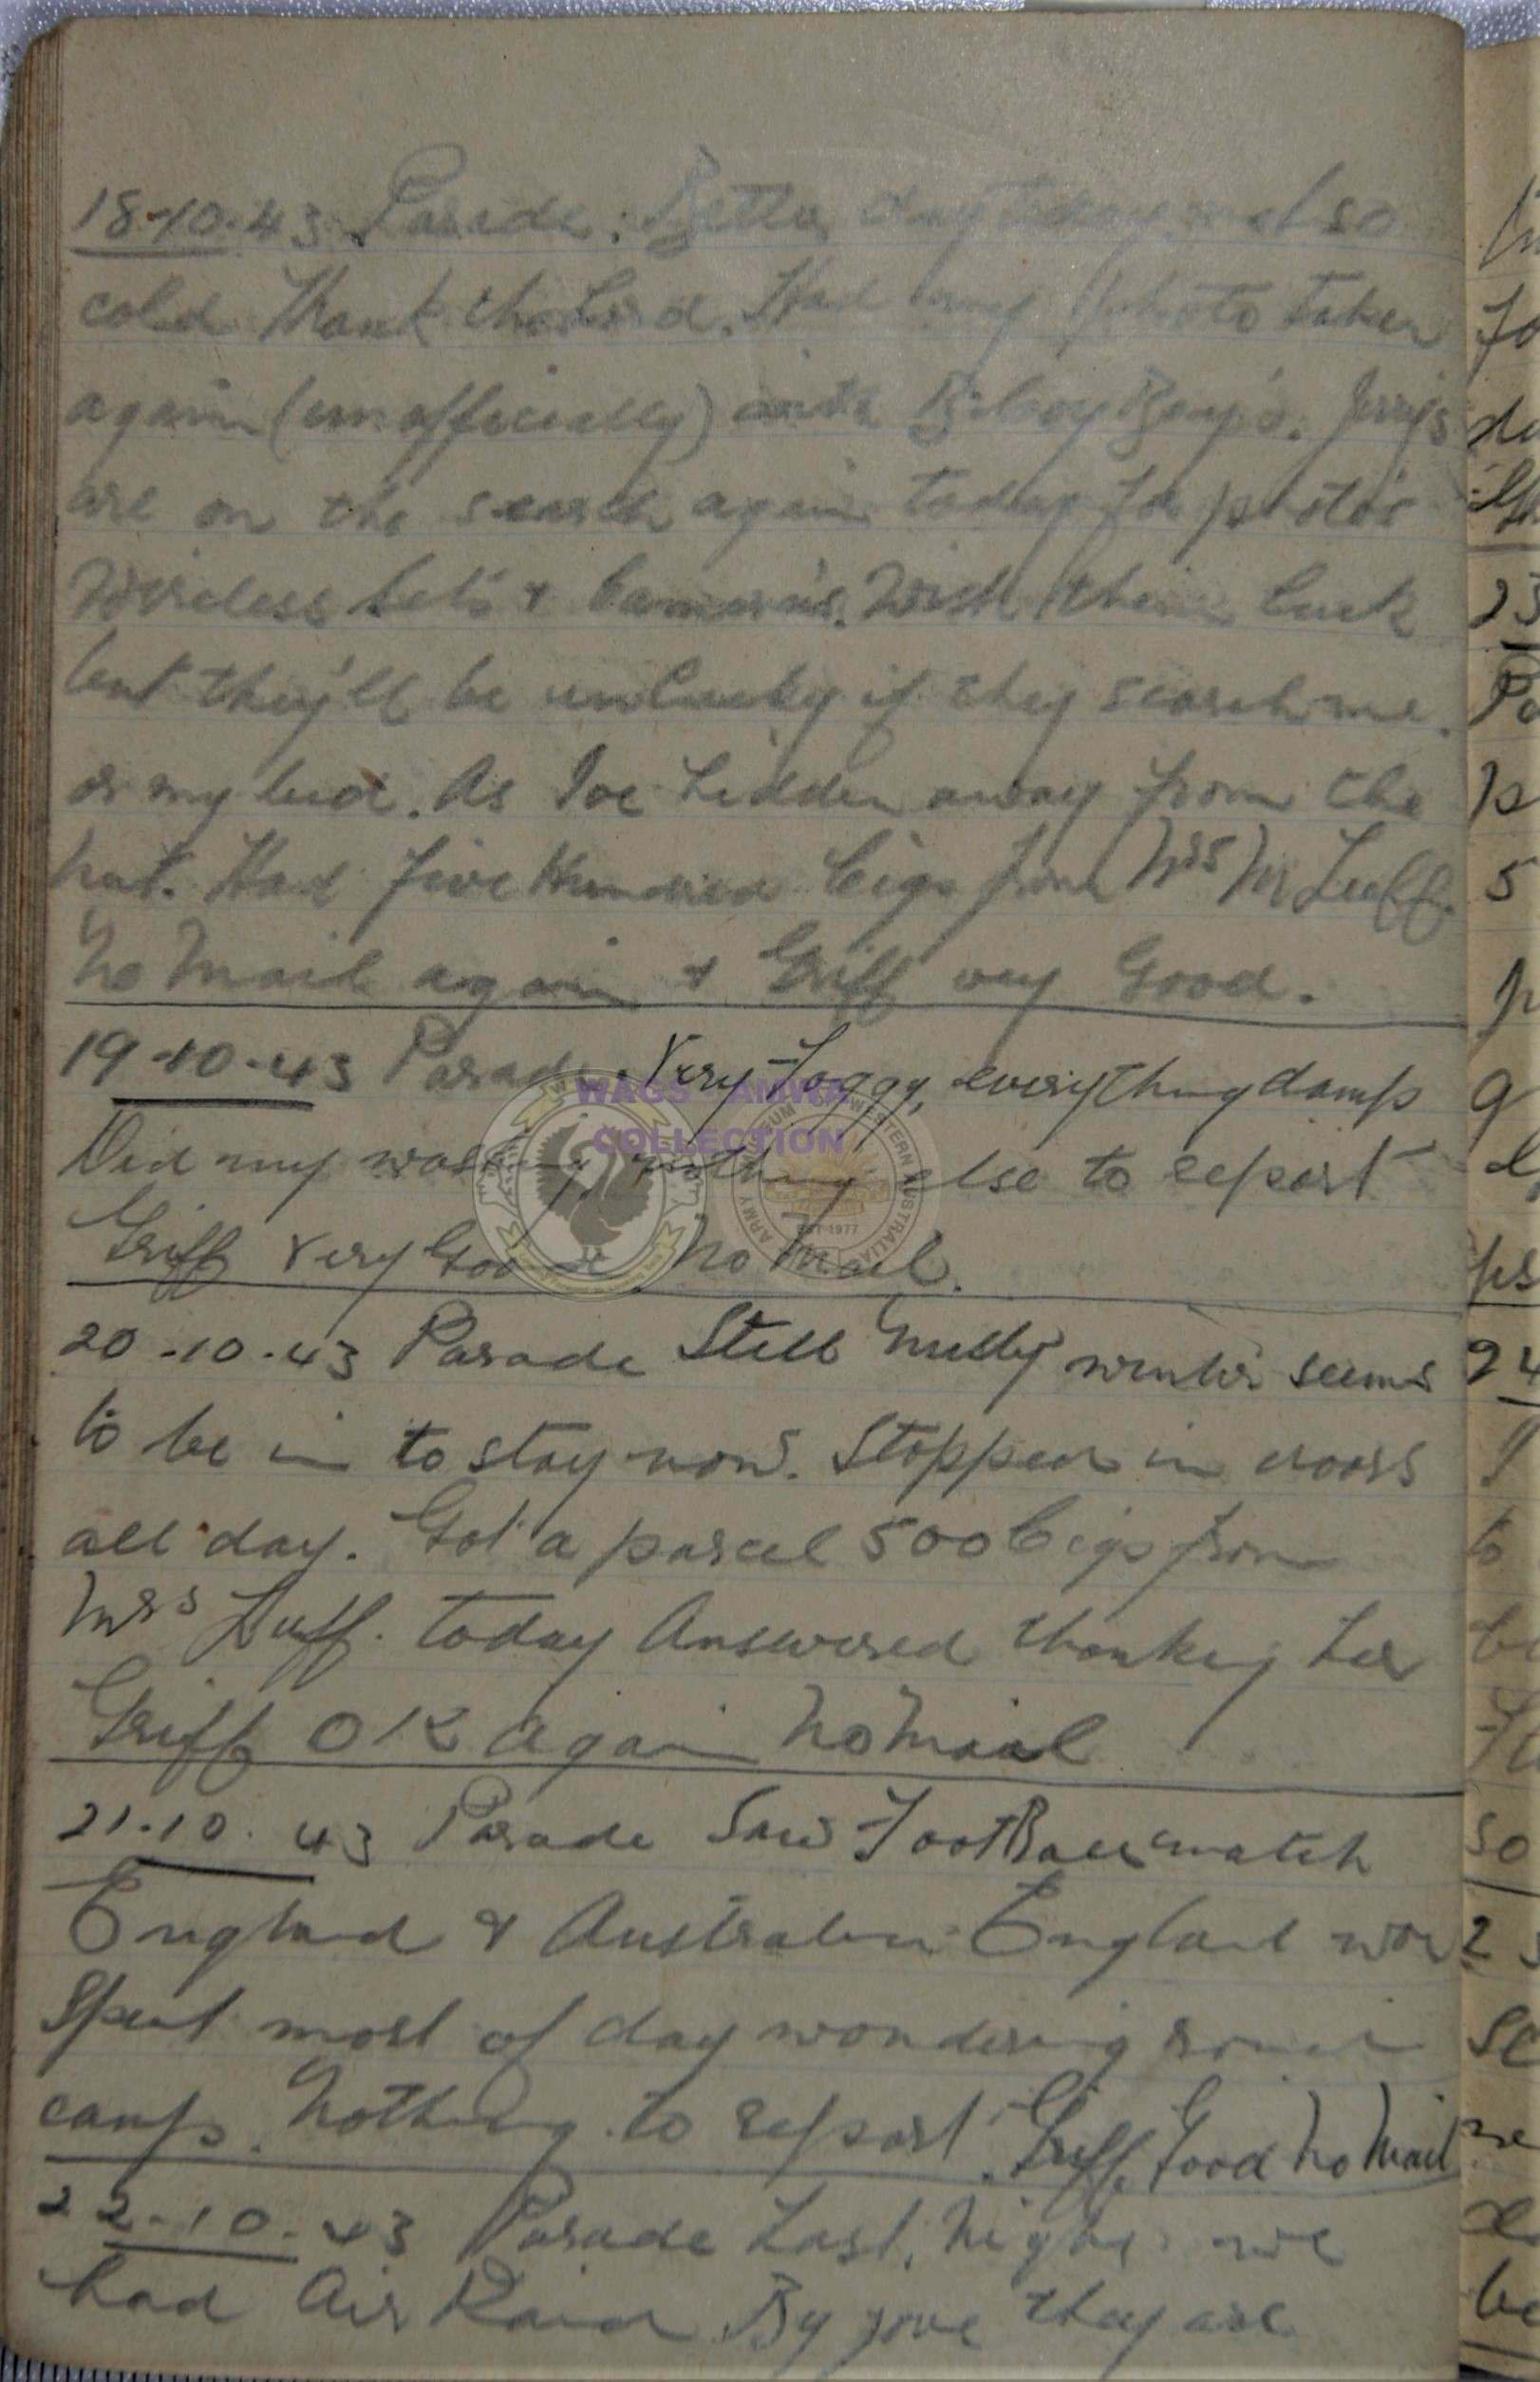 18-10-43 Parade. Better day today not so
cold Thank the Lord. Had my Photo taken
again (unofficially) with Boy's. Jerry's
are on the search again today for photo's
Wireless Sets & Camera's. Wish them luck
but they'll be unlucky if they search me.
or my bed. As I've hidden away from the
hut. Had five Hundred Cigs from Mrs M Luff.
No Mail again & Griff very Good.
19-10-43 Parade. Very Foggy, everything damp
Did my washing, nothing else to report
Griff Very Good No Mail.
20-10-43 Parade Still Misty winter seems
to be in to stay now. Stopped in doors
all day. Got a parcel 500 Cigs from
Mrs Luff. today Answered thanking her
Griff OK again No Mail
21-10-43 Parade Saw FootBall match
England & Australia England won
Spent most of day wondering round
camp. Nothing to report. Griff Good No Mail
22-10-43 Parade Last Night we
had Air Raid By jove they are
WAGS ANWA
COLLECTION
ARMY MUSEUM OF WESTERN AUSTRALIA
EST 1977